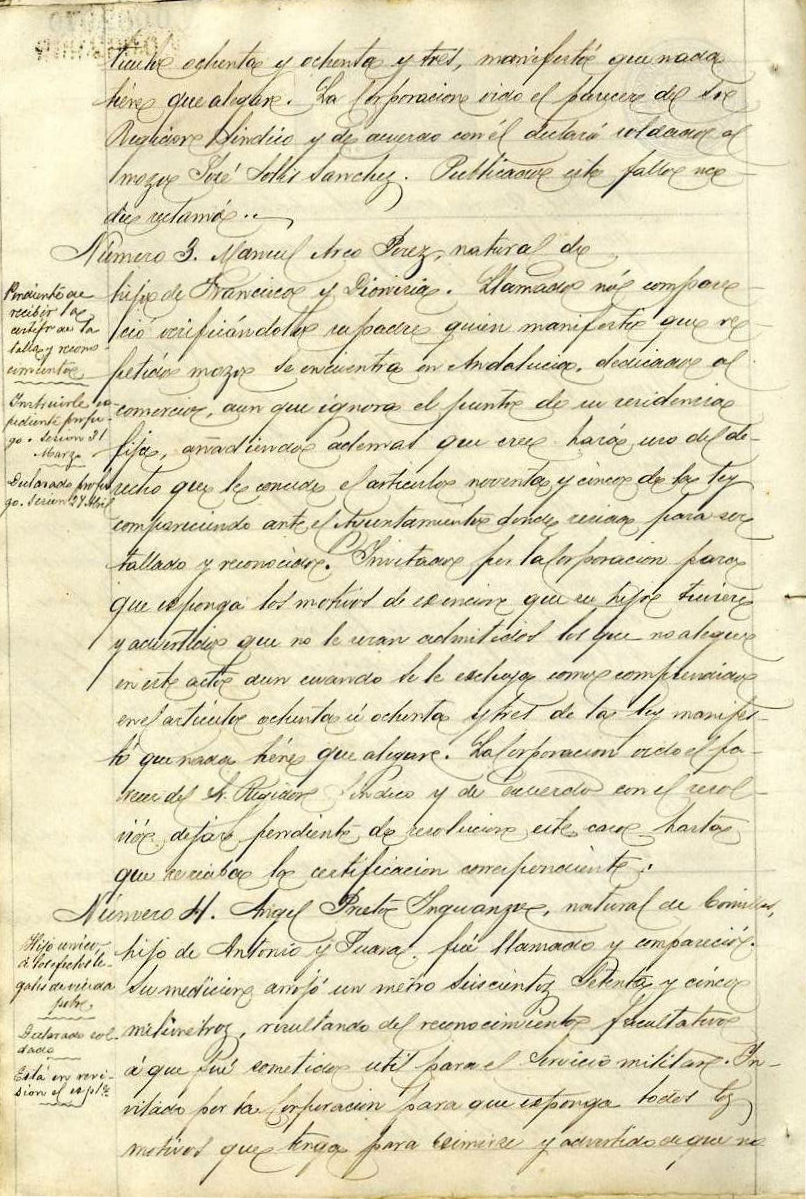 ticulos ochenta y ochenta y tres, manifestó que nada
tiene que alegar. La Corporacion oido el parecer del Sr
Regidor Sindico y de acuerdo con él declaró soldado al
mozo José Solis Sanchez. Publicado este fallo na-
die reclamó.
Número 3. Manuel Arco Perez, natural de
hijo de Francisco y Dionisia. Llamado no compare-
ció verificándolo su padre quien manifestó que re-
petido mozo se encuentra en Andalucia, dedicado al
comercio, aun que ignora el punto de su residencia
fija, añadiendo ademas que cree hará uso del de-
recho que le concede el articulo noventa y cinco de la ley
compareciendo ante el Ayuntamiento donde resida para ser
tallado y reconocido. Invitado por la Corporacion para
que esponga los motivos de esencion que su hijo tuviere
y advertido que no le seran admitidos los que no alegue
en este acto aun cuando se le escluya como comprendido
en el artículo ochenta ú ochenta y tres de la ley manifes-
tó que nada tiene que alegar. La Corporacion oido el pa-
recer del Sr. Regidor Sindico y de acuerdo con el resol-
vió dejar pendiente de resolucion este caso hasta
que reciba la certificacion correspondiente.
Número 4. Angel Prieto Inguanzo, natural de Comillas,
hijo de Antonio y Juana, fué llamado y compareció.
Su medicion arrojó un metro seiscientos setenta y cinco
milimetros, resultando del reconocimiento facultativo
á que fué sometido util para el servicio militar. In-
vitado por la Corporacion para que esponga todos los
motivos que tenga para eximirse y advertido de que no
Pendiente de
recibir la
certifn de la
talla y recono-
cimiento
Instruirle es-
pediente prófu-
go. Sesion 31
Marzo
Declarado prófu-
go. Sesion 27 Abril
Hijo unico
á los efectos le-
gales de viuda
pobre
Declarado sol-
dado
Está en revi-
sion el espte